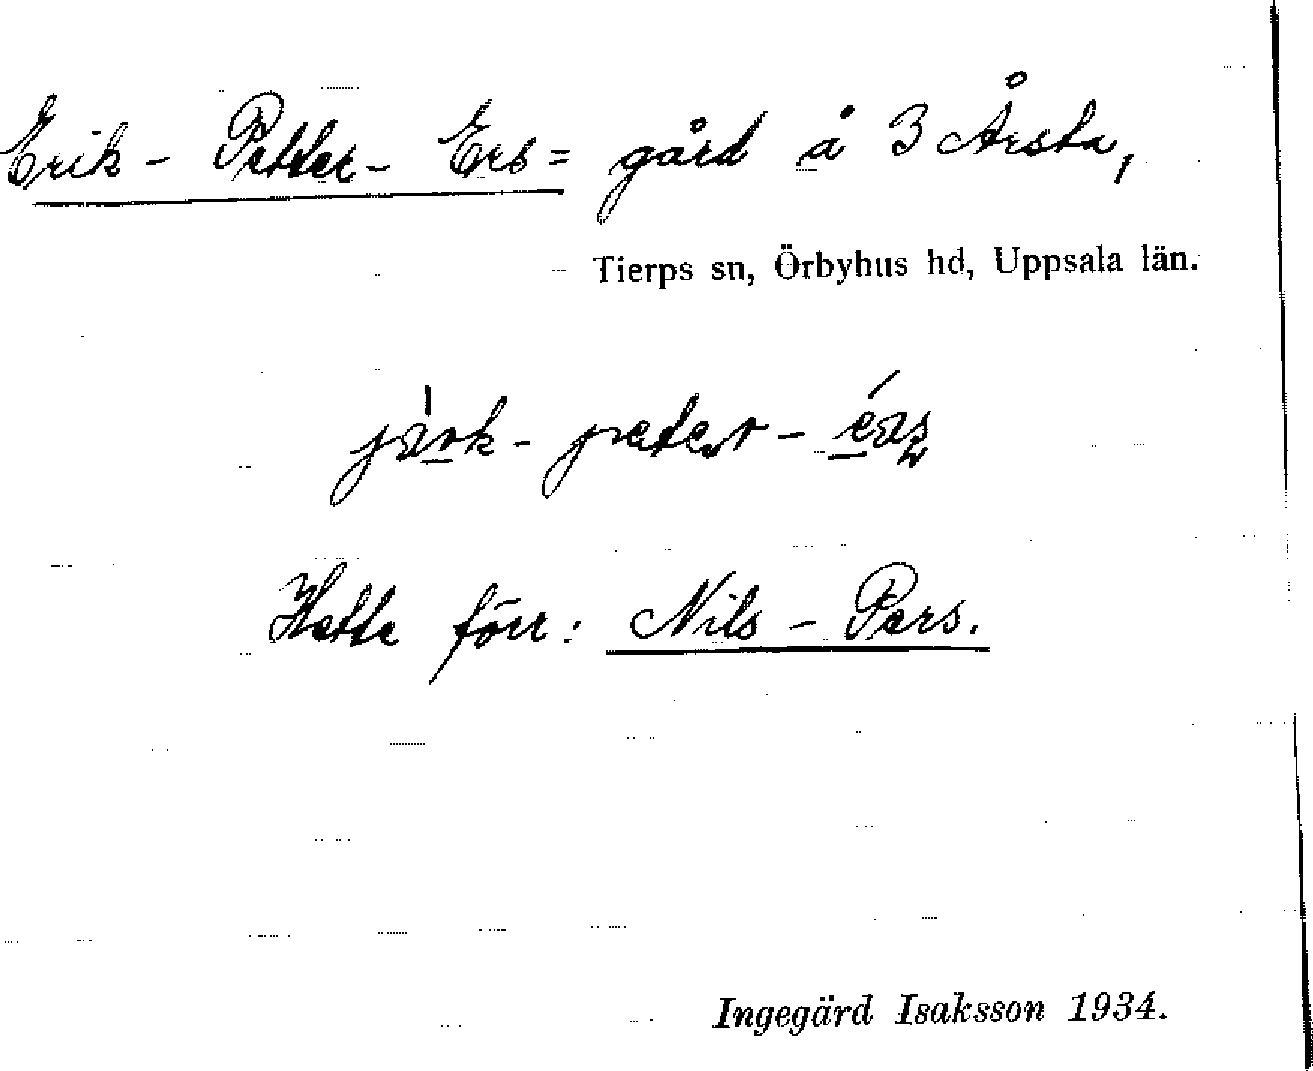 Erik - Petter - Ers = gård å 3 Årsta,
Tierps sn, Örbyhus hd, Uppsala län.
Hette förr: Nils - Pers.
Ingegärd Isaksson 1934.